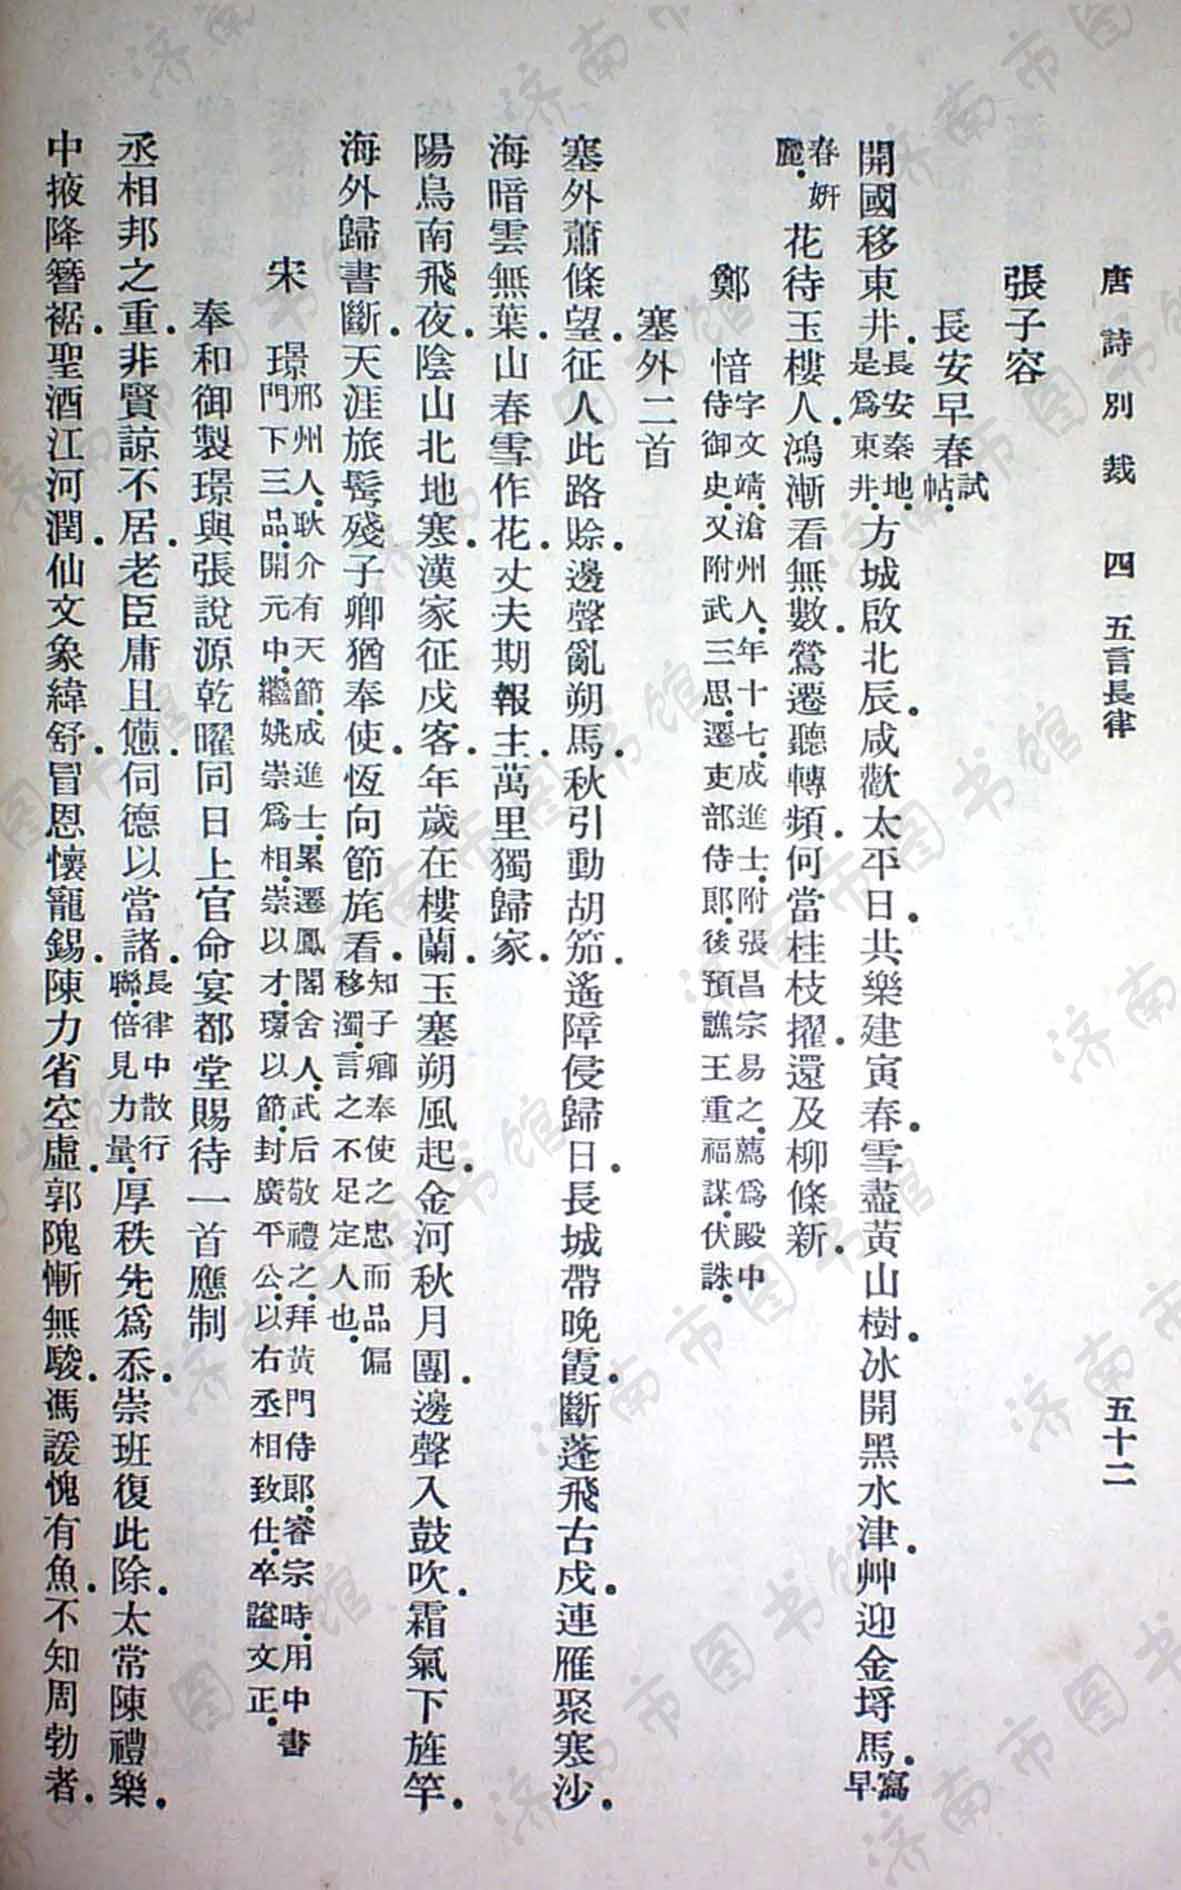 唐詩別裁　四　五言長律　五十二
張子容
長安早春試帖.
開國移東井.長安秦地.是爲東井.方城啟北辰.咸歡太平日.共樂建寅春.雪盡黃山樹.冰開黑水津.艸迎金埒馬.寫早
春姸麗.花待玉樓人.鴻漸看無數.鶯遷聽轉頻.何當桂枝擢.還及柳條新.
鄭愔字文靖.滄州人.年十七.成進士.附張昌宗易之.薦爲殿中侍御史.又附武三思.遷吏部侍郎.後預譙王重福謀.伏誅.
塞外二首
塞外蕭條望.征人此路賒.邊聲亂朔馬.秋引動胡笳.遙障侵歸日.長城帶晚霞.斷蓬飛古戍.連雁聚寒沙.
海暗雲無葉.山春雪作花.丈夫期報主.萬里獨歸家.
陽烏南飛夜.陰山北地寒.漢家征戍客.年歲在樓蘭.玉塞朔風起.金河秋月團.邊聲入鼓吹.霜氣下旌竿.
海外歸書斷.天涯旅鬢殘.子卿猶奉使.恆向節旄看.知子卿奉使之忠而品偏移濁.言之不足定人也.
宋璟邢州人.耿介有天節.成進士.累遷鳳閣舍人.武后敬禮之.拜黃門侍郎.睿宗時.用中書門下三品.開元中.繼姚崇爲相.崇以才.璟以節.封廣平公.以右丞相致仕.卒謚文正.
奉和御製璟與張說源乾曜同日上官命宴都堂賜待一首應制
丞相邦之重.非賢諒不居.老臣庸且憊.何德以當諸.長律中散行聯.倍見力量.厚秩先爲忝.崇班復此除.太常陳禮樂.
中掖降簪裾.聖酒江河潤.仙文象緯舒.冒恩懷寵錫.陳力省空虛.郭隗慚無駿.馮諼愧有魚.不知周勃者.